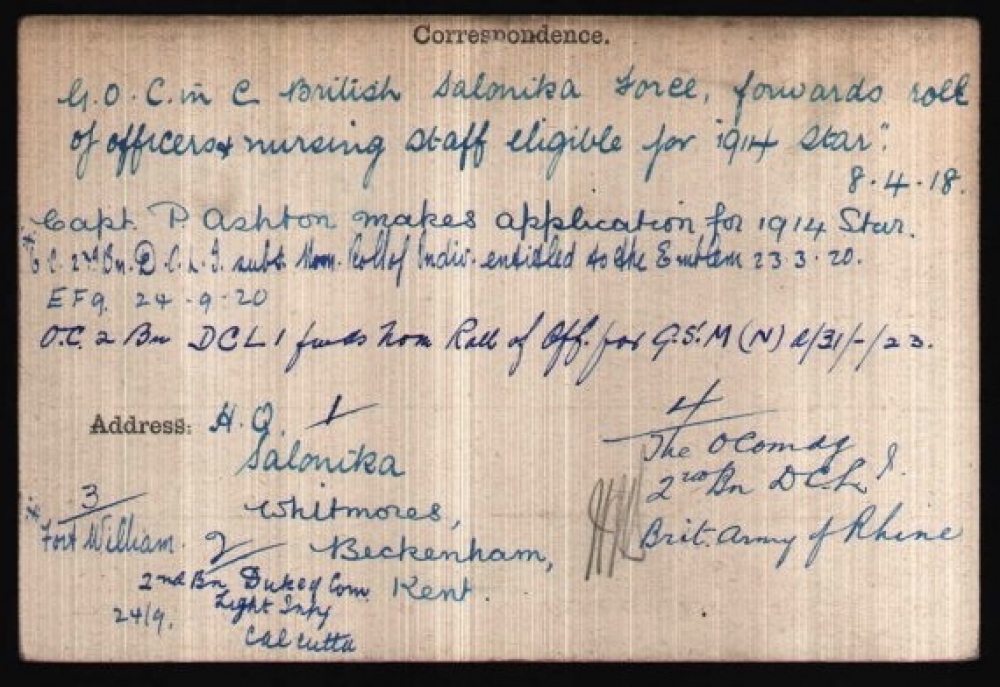 Correspondence.
G.O.C. in C British Salonika Force, forwards roll
of officers & nursing staff eligible for "1914 Star".
8.4.18.
Capt. P. Ashton makes application for 1914 Star.
O.C. 2nd Bn. D.C.L.I. subt. Nom. Roll of Indiv. entitled to the Emblem 23.3.20.
EF9. 24.9.20
O.C. 2 Bn DCLI fwds Nom Roll of Off. for G.S.M (N) d/31/-/23.
Address: H.Q. 1
Salonika
Whitmores,
Beckenham,
Kent.
3
Fort William.
2
2nd Bn Duke of Corn.
Light Infy
24/9.
Calcutta
4
The O Comdg
2nd Bn D.C.L.I.
Brit. Army of Rhine